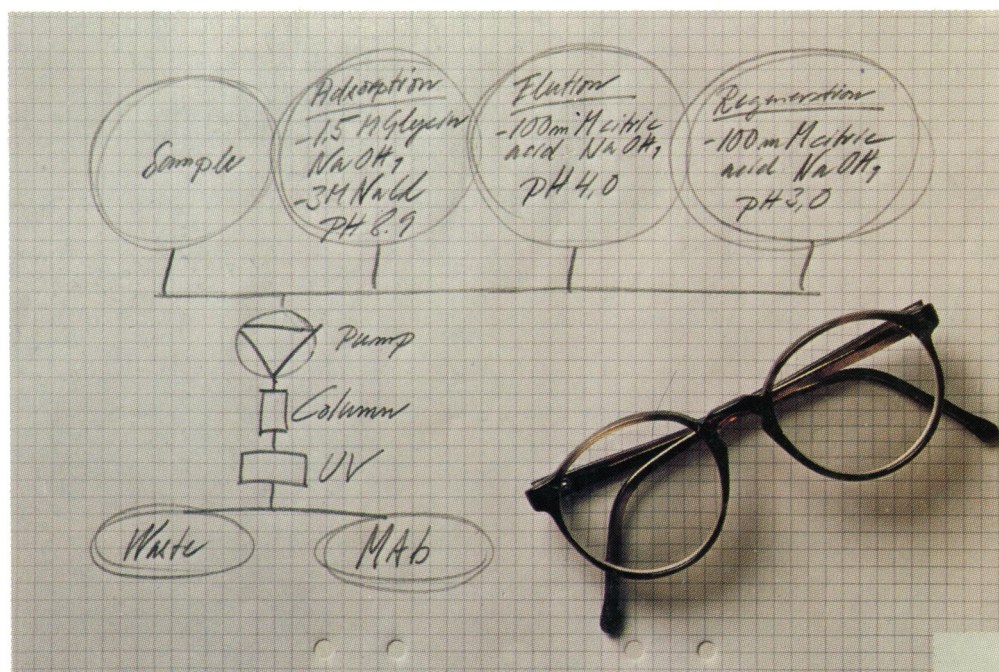 Sample
Adsorption
-1,5 M Glycin
NaOH,
-3M NaCl
pH 8.9
Elution
-100 mM citric
acid NaOH,
pH 4,0
Regeneration
-100 mM citric
acid NaOH,
pH 3,0
Pump
Column
UV
Waste
MAb